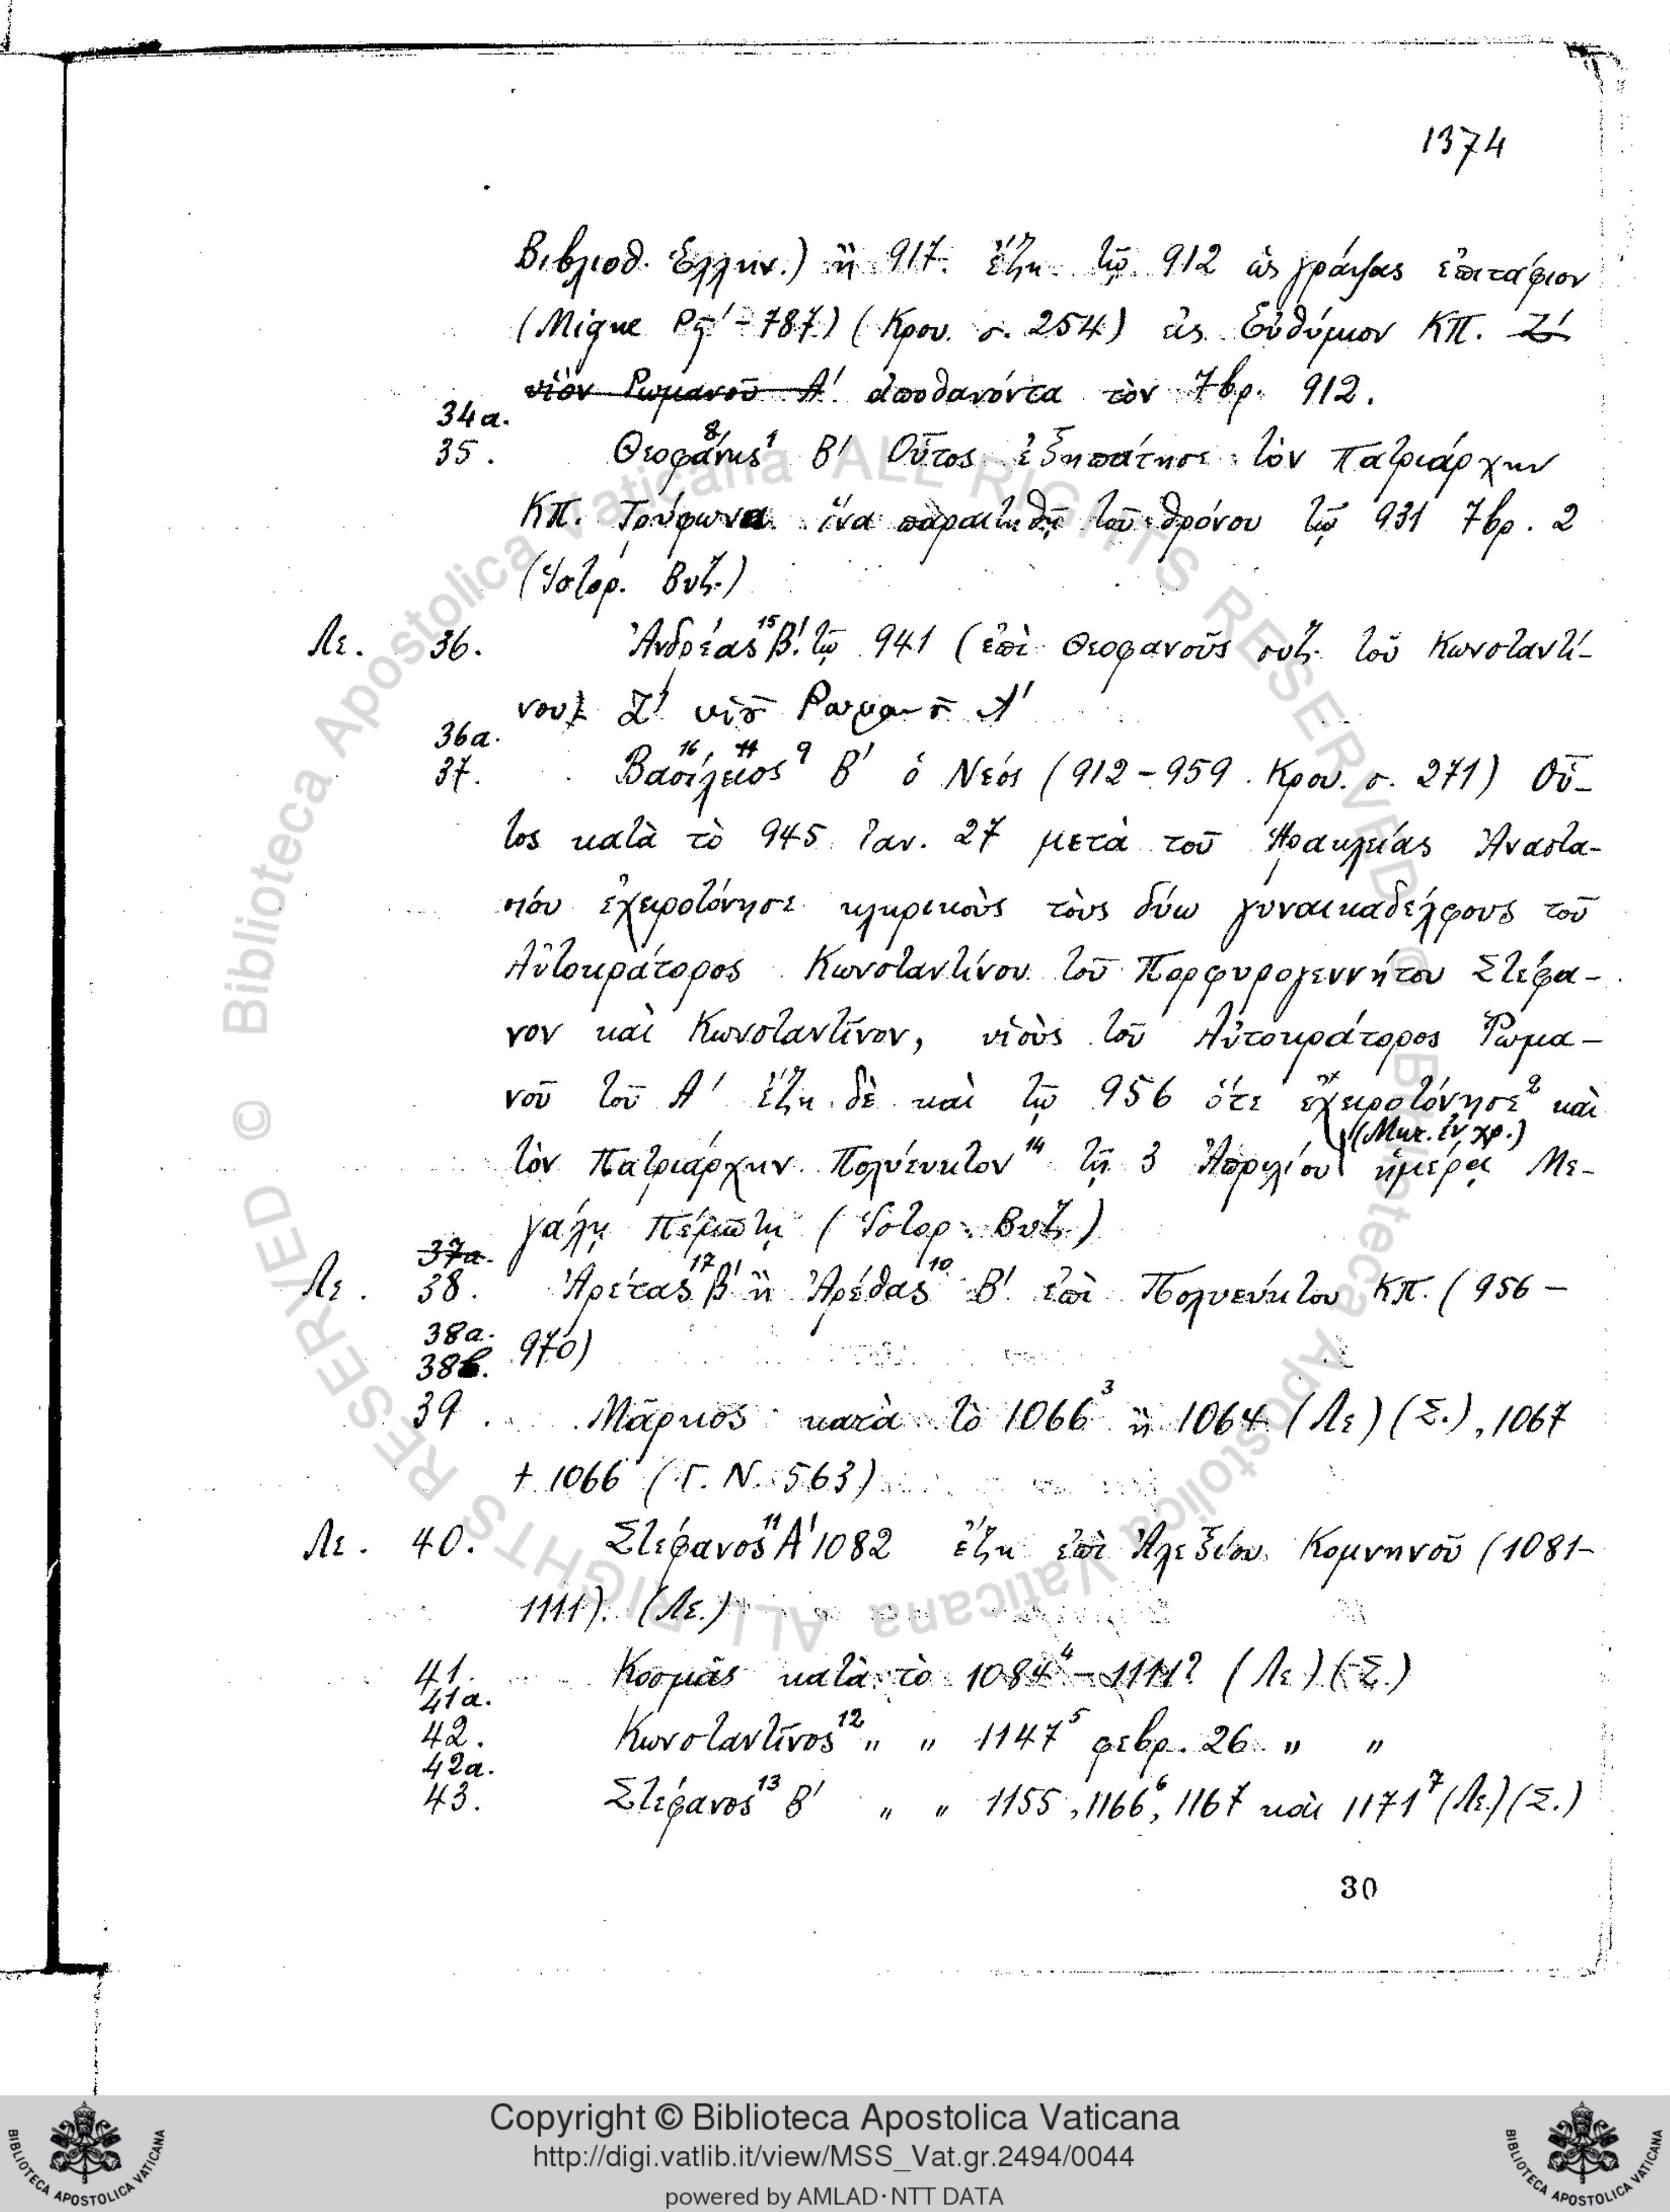 1374
Βιβλιοθ. Ἑλλην.) ἢ 917. ἔζη τῷ 912 ὡς γράψας ἐπιτάφιον
(Migne Ρς′ - 787) (Κρου. σ. 254) εἰς Εὐθύμιον ΚΠ. Ζ′
υἱὸν Ῥωμανοῦ Α′ ἀποθανόντα τὸν 7βρ. 912.
34α.
35. Θεοφάνης⁸ ¹ Β′ Οὗτος ἐξηπάτησε τὸν Πατριάρχην
ΚΠ. Τρύφωνα ἵνα παραιτηθῇ τοῦ θρόνου τῷ 931 7βρ. 2
(Ἱστορ. Βυζ.)
Λε. 36. Ἀνδρέας¹⁵ Β′. τῷ 941 (ἐπὶ Θεοφανοῦς συζ. τοῦ Κωνσταντί-
νου) Ζ′ υἱοῦ Ρωμανοῦ Α′
36α.
37. Βασίλειος¹⁶ ¹¹ ⁹ Β′ ὁ Νεός (912-959. Κρου. σ. 271) Οὗ-
τος κατὰ τὸ 945 Ἰαν. 27 μετὰ τοῦ Ἡρακλείας Ἀναστα-
σίου ἐχειροτόνησε κληρικοὺς τοὺς δύω γυναικαδέλφους τοῦ
Αὐτοκράτορος Κωνσταντίνου τοῦ Πορφυρογεννήτου Στέφα-
νον καὶ Κωνσταντῖνον, υἱοὺς τοῦ Αὐτοκράτορος Ῥωμα-
νοῦ τοῦ Α′ ἔζη δὲ καὶ τῷ 956 ὅτε ἐχειροτόνησε² καὶ
(Μητ. ἐν χρ.)
τὸν Πατριάρχην Πολύευκτον¹⁴ τῇ 3 Ἀπριλίου ἡμέρᾳ Με-
γάλῃ Πέμπτῃ (Ἱστορ. Βυζ.)
37α.
Λε. 38. Ἀρέτας¹⁷ Β′ ἢ Ἀρέθας¹⁰ Β′ ἐπὶ Πολυεύκτου ΚΠ. (956-
38α. 970)
38β.
39. Μᾶρκος κατὰ τὸ 1066³ ἢ 1064 (Λε) (Σ.), 1067
+ 1066 (Γ. Ν. 563)
Λε. 40. Στέφανος¹¹ Α′ 1082 ἔζη ἐπὶ Ἀλεξίου Κομνηνοῦ (1081-
1111). (Λε.)
41. Κοσμᾶς κατὰ τὸ 1084⁴ - 1111? (Λε) (Σ.)
41α.
42. Κωνσταντῖνος¹² „ „ 1147⁵ φεβρ. 26 „ „
42α.
43. Στέφανος¹³ Β′ „ „ 1155, 1166⁶, 1167 καὶ 1171⁷ (Λε.) (Σ.)
30
© Biblioteca Apostolica Vaticana ALL RIGHTS RESERVED © Biblioteca Apostolica Vaticana ALL RIGHTS RESERVED
Copyright © Biblioteca Apostolica Vaticana
http://digi.vatlib.it/view/MSS_Vat.gr.2494/0044
powered by AMLAD·NTT DATA
BIBLIOTECA APOSTOLICA VATICANA
BIBLIOTECA APOSTOLICA VATICANA